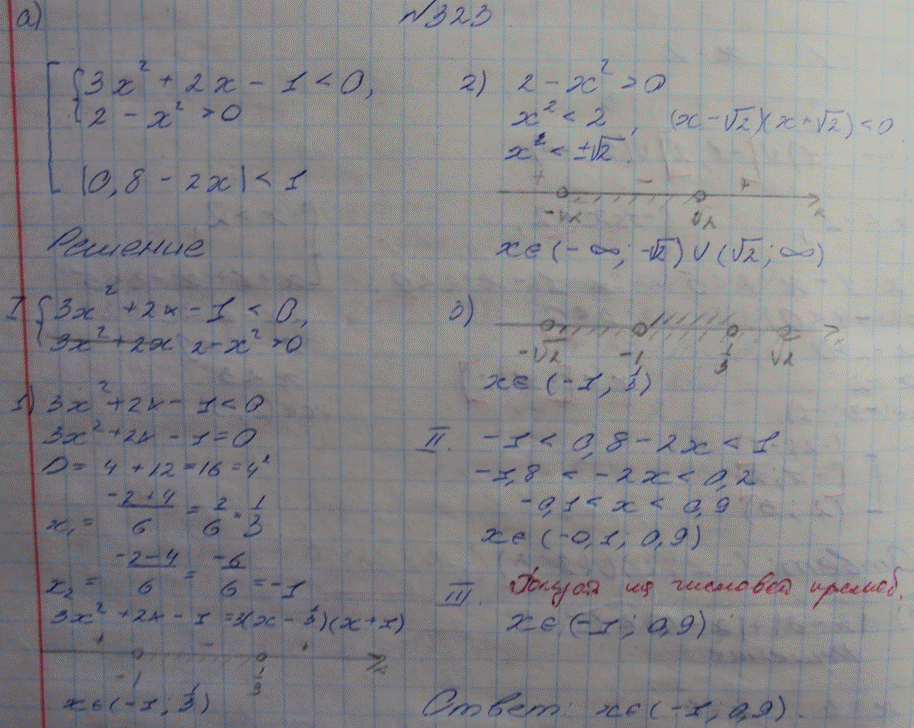 а) №323
{3x² + 2x - 1 < 0,
2 - x² > 0
|0,8 - 2x| < 1
Решение
I {3x² + 2x - 1 < 0,
3x² + 2x 2 - x² > 0
1) 3x² + 2x - 1 < 0
3x² + 2x - 1 = 0
D = 4 + 12 = 16 = 4²
x₁ = (-2+4)/6 = 2/6 = 1/3
x₂ = (-2-4)/6 = -6/6 = -1
3x² + 2x - 1 = 3(x - 1/3)(x + 1)
+ - +
-1 1/3 x
x∈(-1; 1/3)
2) 2 - x² > 0
x² < 2, (x - √2)(x + √2) < 0
x² < ±√2.
+ - +
-√2 √2 x
x∈(-∞; -√2) ∪ (√2; ∞)
3)
-√2 -1 1/3 √2 x
x∈(-1; 1/3)
II. -1 < 0,8 - 2x < 1
-1,8 < -2x < 0,2
-0,1 < x < 0,9
x∈(-0,1; 0,9)
III. на числовой прямой.
x∈(-1; 0,9)
Ответ: x∈(-1; 0,9).